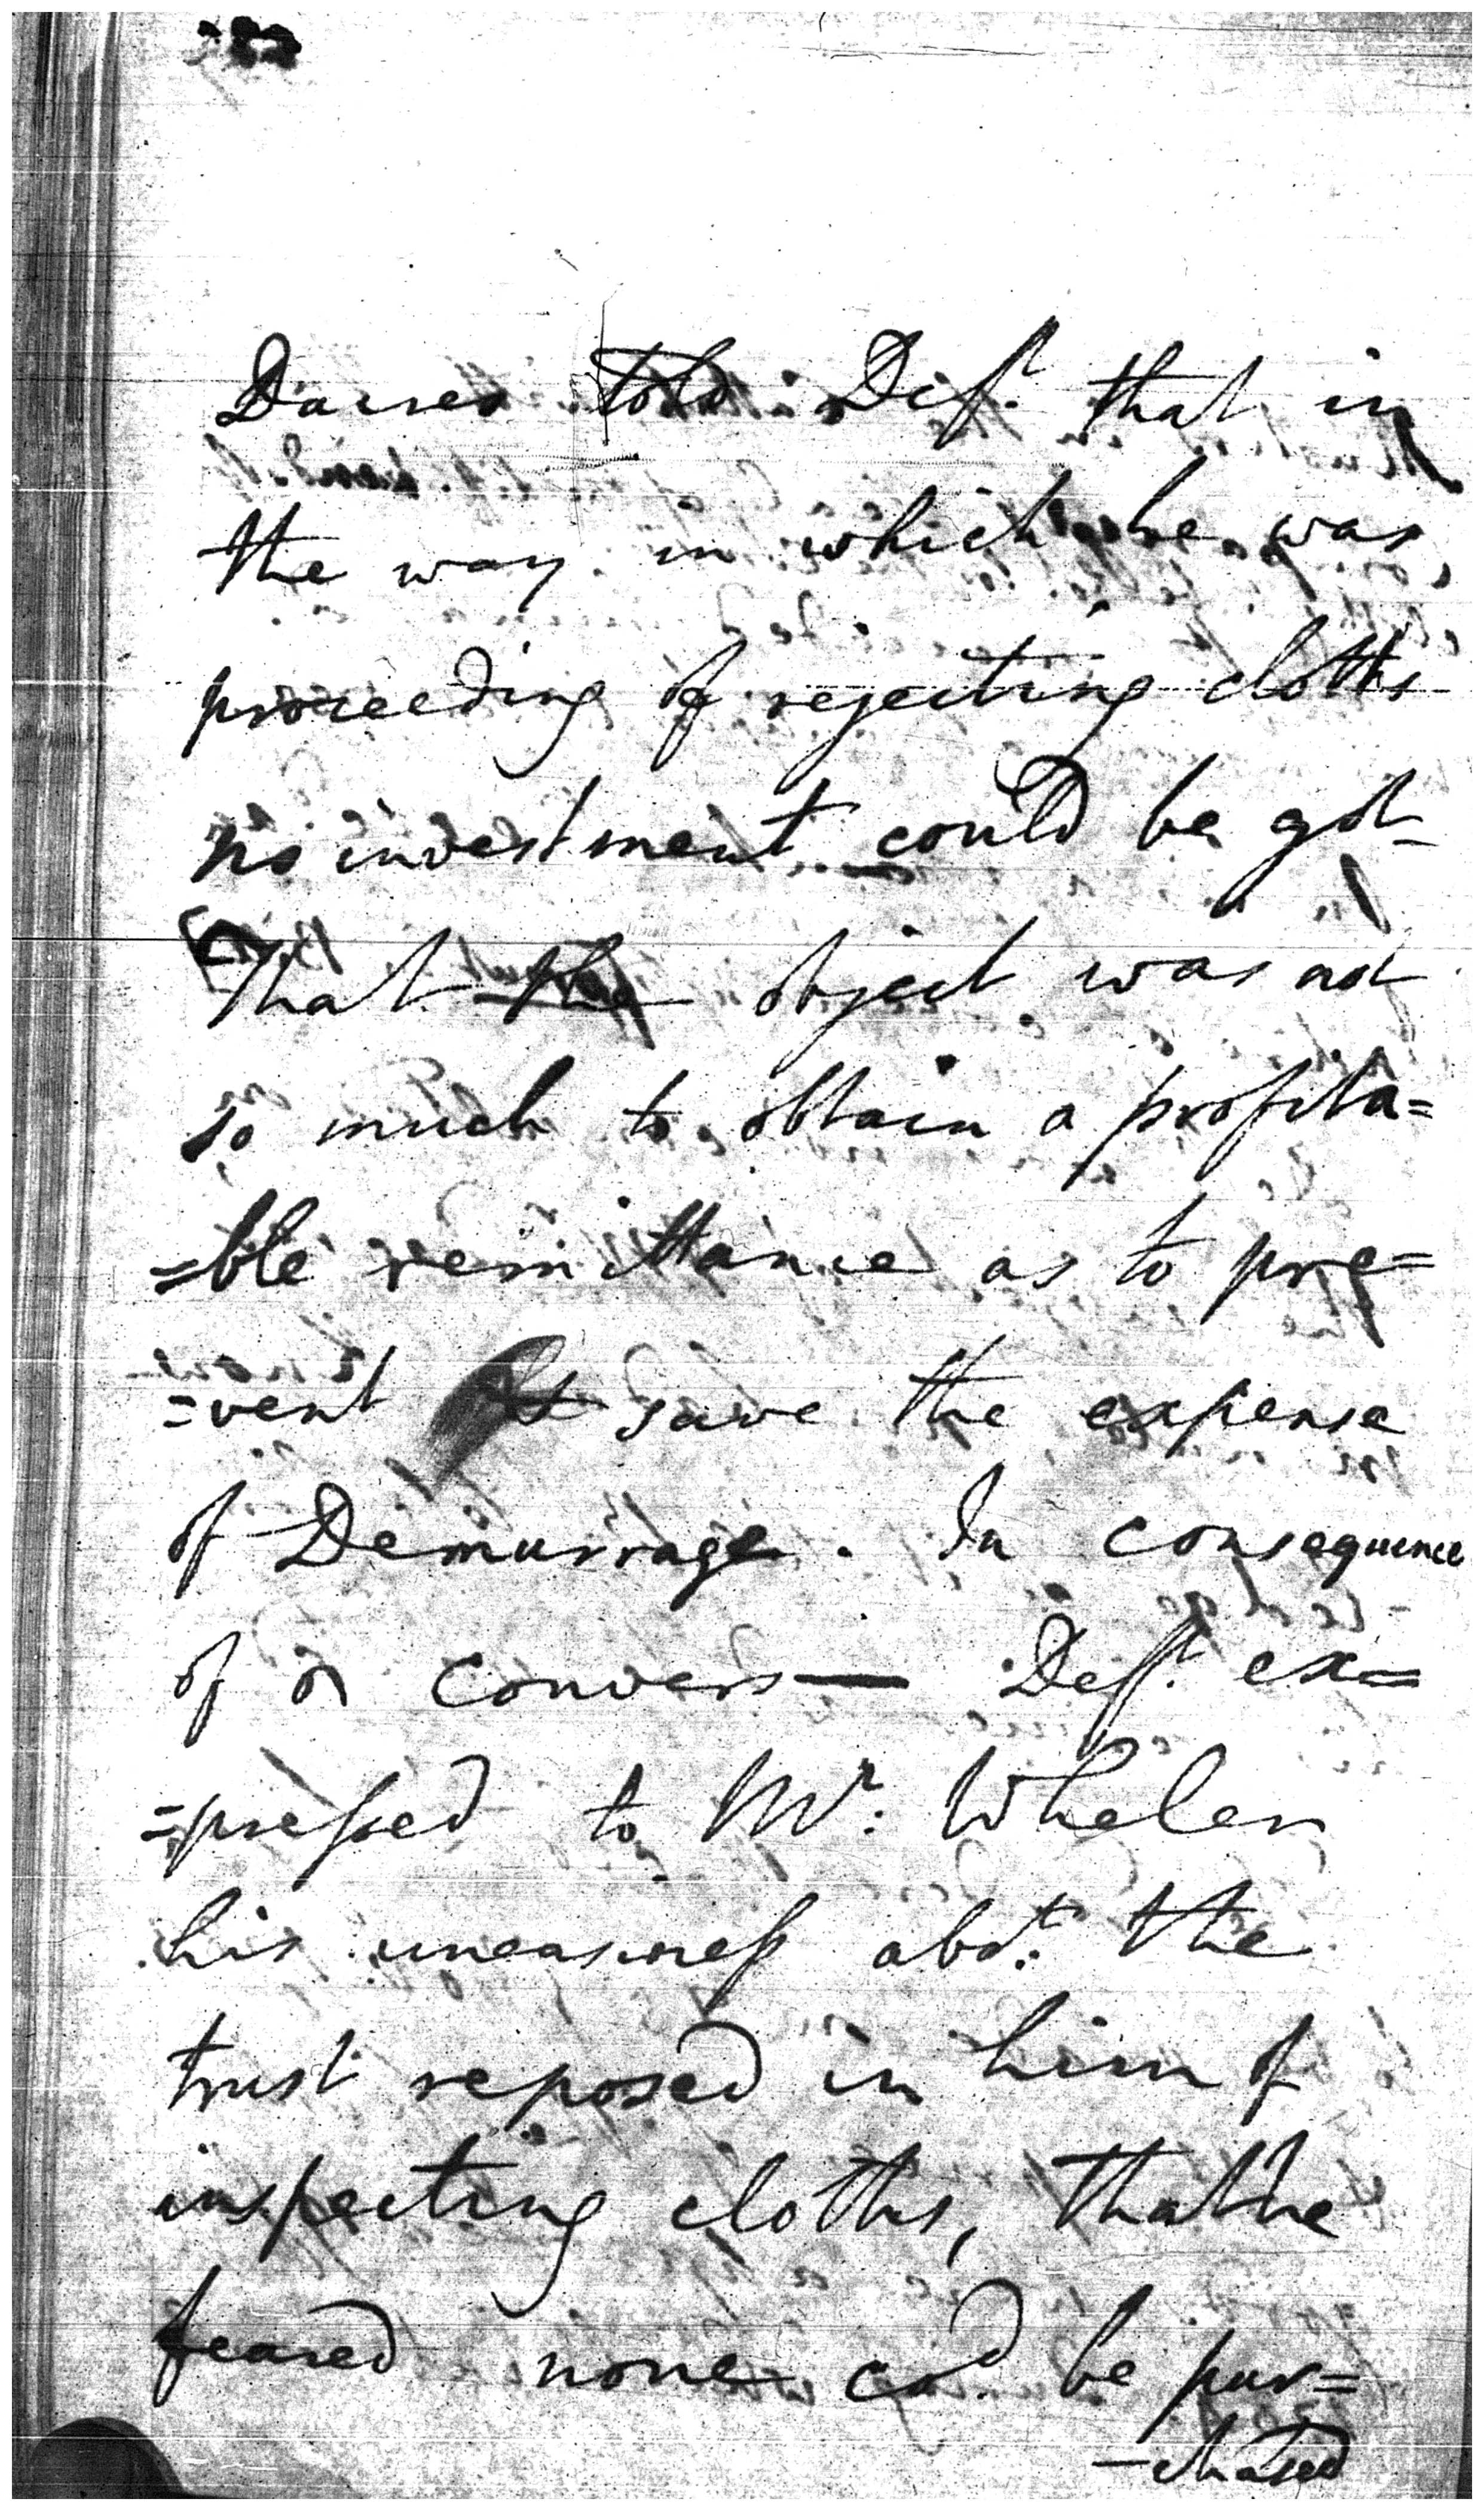 Dacres told Deft. that in
the way in which he was
proceeding of rejecting cloths
no investment could be got
That the object was not
so much to obtain a profita=
=ble remittance as to pre=
=vent save the expense
of Demurrage. In consequence
of convers— Deft. ex=
=pressed to Mr. Whelen
his uneasiness abot. the
trust reposed in him of
inspecting cloths, that he
feared none cod. be pur=
—chased